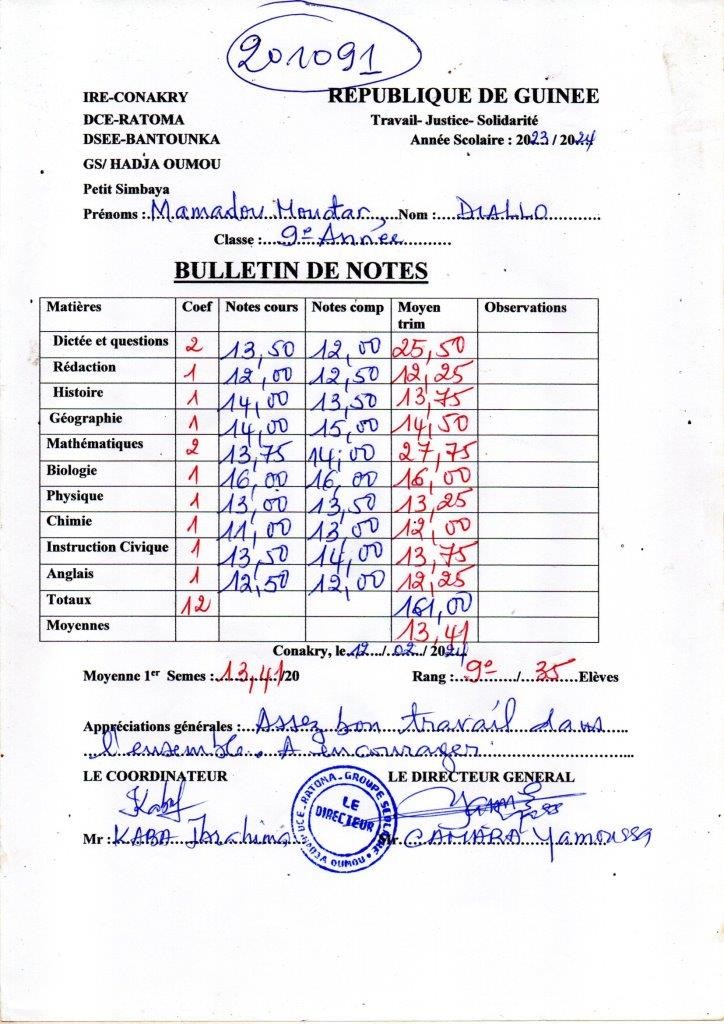 201091
IRE-CONAKRY REPUBLIQUE DE GUINEE
DCE-RATOMA Travail- Justice- Solidarité
DSEE-BANTOUNKA Année Scolaire : 2023 / 2024
GS/ HADJA OUMOU
Petit Simbaya
Prénoms : Mamadou Moudar, Nom : DIALLO
Classe : 9e Année
BULLETIN DE NOTES
Matières Coef Notes cours Notes comp Moyen trim Observations
Dictée et questions 2 13,50 12,00 25,50
Rédaction 1 12,00 12,50 12,25
Histoire 1 14,00 13,50 13,75
Géographie 1 14,00 15,00 14,50
Mathématiques 2 13,75 14,00 27,75
Biologie 1 16,00 16,00 16,00
Physique 1 13,00 13,50 13,25
Chimie 1 11,00 13,00 12,00
Instruction Civique 1 13,50 14,00 13,75
Anglais 1 12,50 12,00 12,25
Totaux 12 161,00
Moyennes 13,41
Conakry, le 12 / 02 / 2024
Moyenne 1er Semes : 13,41/20 Rang : 9e / 35 Elèves
Appréciations générales : Assez bon travail dans
l'ensemble. A encourager.
LE COORDINATEUR LE DIRECTEUR GENERAL
Kabf
DCE-RATOMA-GROUPE SCOLAIRE
HADJA OUMOU
LE
DIRECTEUR
Mr : KABA Ibrahima Mr CAMARA Yamoussa